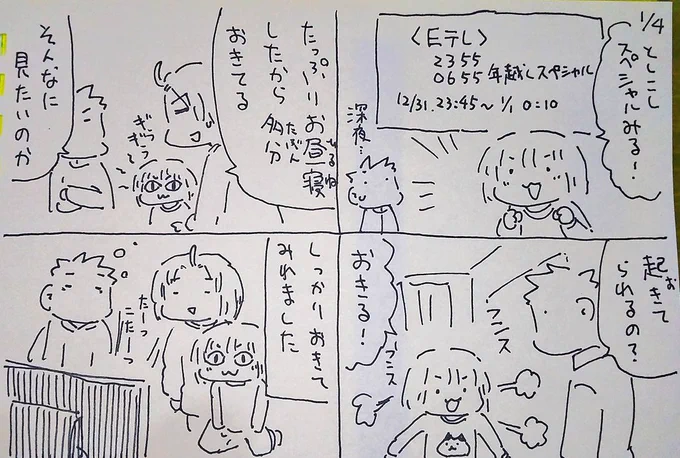 1/4
としこし
スペシャルみる!
〈Eテレ〉
2355
0655 年越しスペシャル
12/31. 23:45〜 1/1 0:10
深夜…
起きて
お
られるの?
フンス
おきる!
フンス
たっぷりお昼寝
ひるね
したから多分
たぶん
おきてる
ぎっっ
そんなに
見たいのか
しっかりおきて
みれました
たーっ
こたーっ